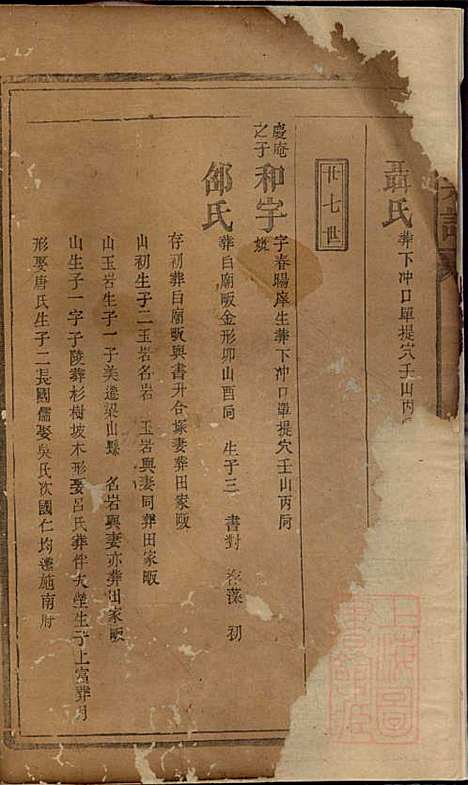 聶氏 葬下冲口單提穴壬山丙
廿七世
慶庵之子 和字 字春暘庠生葬下冲口單提穴壬山丙向
邰氏 葬白廟畈金形卯山酉向 生子三 書對 存藻 初
存初葬白廟畈與書升合塚妻葬田家畈
山初生子二玉岩名岩 玉岩與妻同葬田家畈
山玉岩生子一子美遷梁山縣 名岩與妻亦葬田家畈
山生子一字子陵葬杉樹坡木形娶呂氏葬伴大塋生子上富葬月
形娶唐氏生子二長國儒娶吳氏次國仁均遷施南府